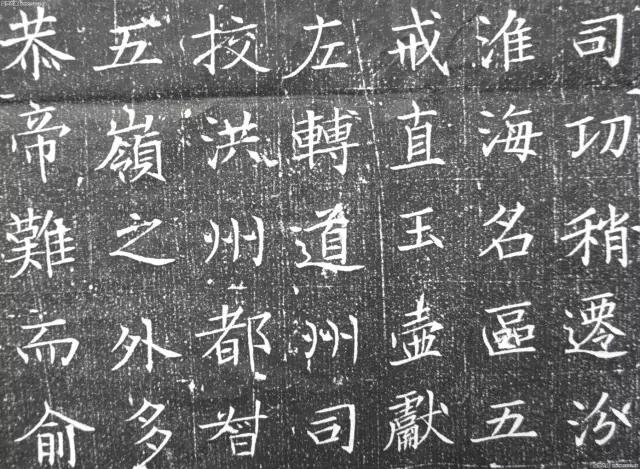 司㓛稍遷汾
淮海名區五
戒直玉壺獻
左轉道州司
授洪州都督
五嶺之外多
恭帝難而俞